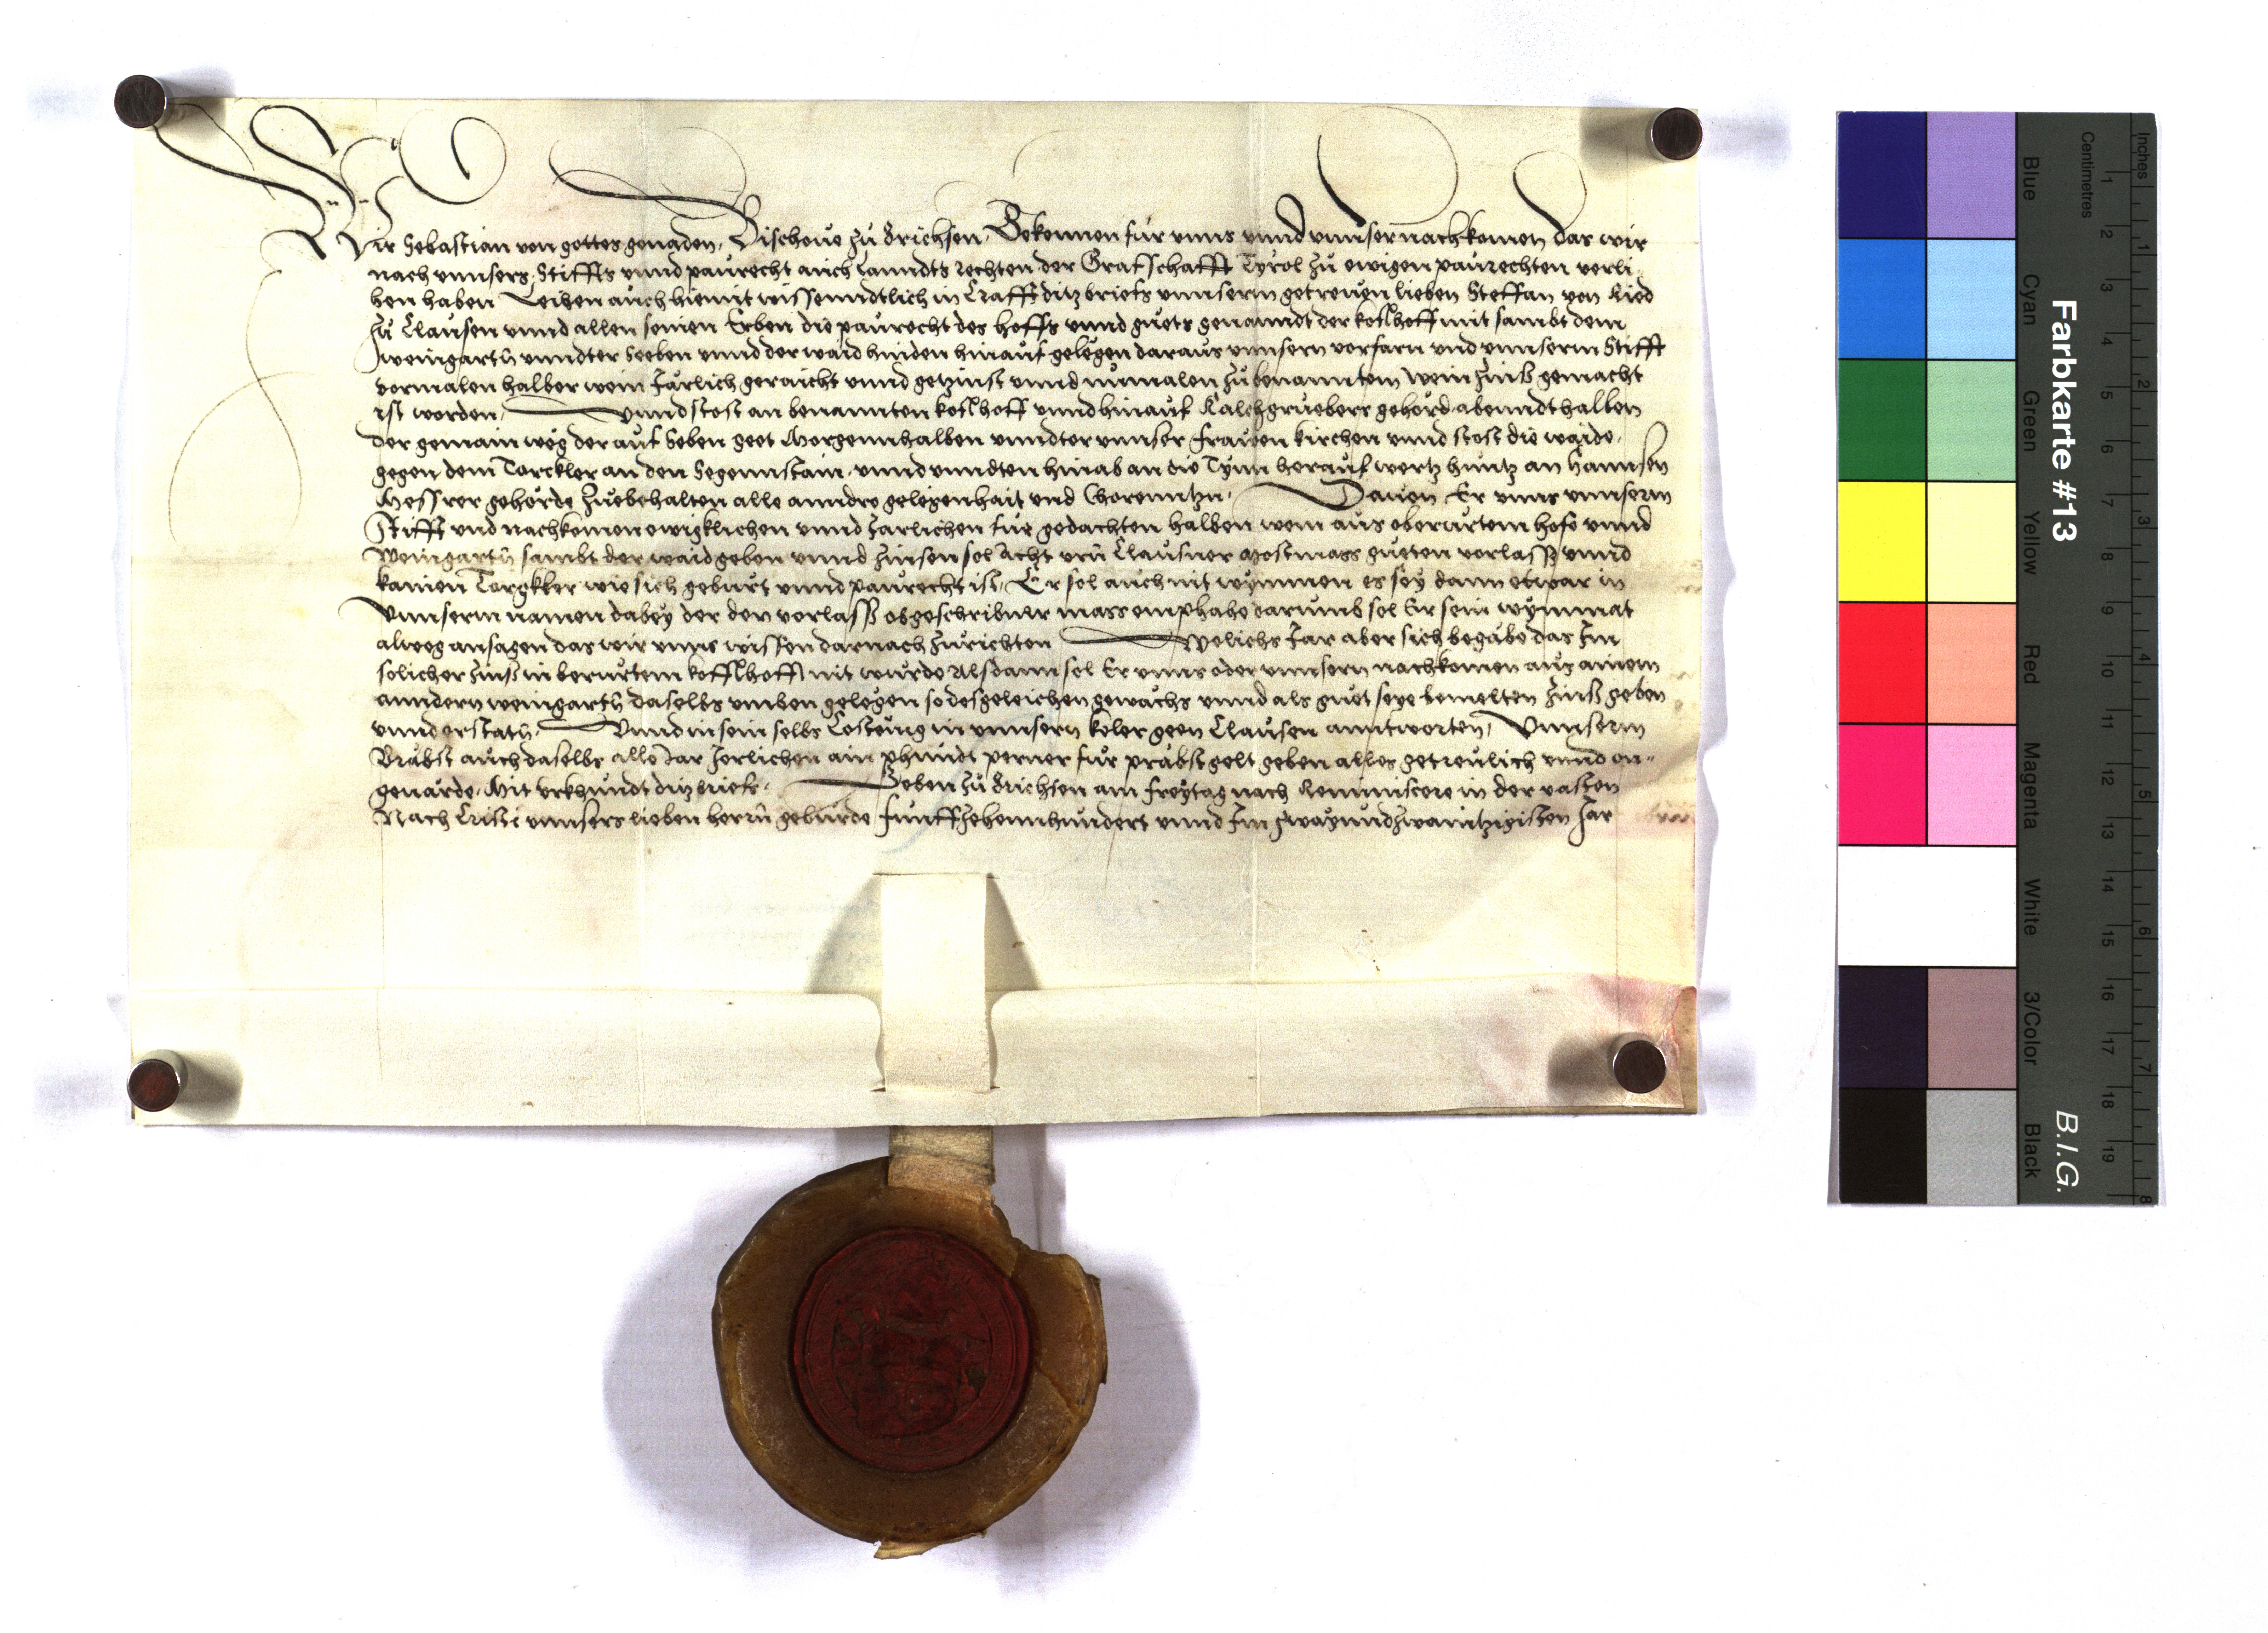 Wir Sebastian von gottes genaden, Bischoue zu Brichsen, Bekennen für unns unnd unnser nachkomen das wir
nach unnsers Stiffts unnd paurecht auch Lanndts rechten der Grafschafft Tyrol zu ewigen paurechten verli
hen haben Leihen auch hiemit wissenndtlich in Crafft ditz briefs unnserm getreuen lieben Steffan von Ried
zu Clausen unnd allen seinen Erben die paurecht des hoffs unnd guets genanndt der koflhoff mit sambt dem
weingartn unndter Seeben unnd der waid hinden hinauf gelegen daraus unnsern vorfarn und unnserm Stifft
vormalen halber wein Järlich geraicht unnd getzinst unnd numalen zu benanntem wein Zinß gemacht
ist worden, unnd stost an benannten koflhoff unnd hinauf Kalchgruebers gehörd abenndthalben
der gemain weg der auf Seben geet Morgennhalben unndter unnser frauen kirchen unnd stost die waide
gegen dem Torckler an den Segennstain unnd unndten hinab an die Tynn herauf wertz huntz an Hannsen
Messrer gehörde Zuebehalten alle anndre gelegenhait und Gorenntzn, Dauon Er unns unnserm
Stifft und nachkomen ewigklichen unnd Jarlichen für gedachten halben wein aus oberürtem hofe unnd
Weingartn sambt der waid geben unnd Zinsen sol Acht urn Clausner Mostmass gueten vorlaß unnd
kainen Torgkler wie sich geburt unnd paurecht ist, Er sol auch nit wymmen es sey dann etwar in
unnserm namen dabey der den vorlaß obgeschribner mass emphahe darumb sol Er sein wymmat
alweg ansagen das wir unns wissen darnach zurichten Welichs Jar aber sich begäbe das Im
solicher Zinß in berürtem kofflhoff nit wurde Alsdann sol Er unns oder unnsern nachkomen aus ainem
anndern weingartn daselbs umben gelegen so desgeleichen gewachs unnd als guet seye bemelten Zinß geben
unnd erstatn, Unnd in sein selbs Costung in unnsern keler geen Clausen anntworten, Unnserm
Brabst auch daselbs alle Jar Jerlichen ain phundt perner für prabstgelt geben alles getreulich unnd on-
geuärde, Mit urkhundt ditz briefs, Geben zu Brichsen am freytag nach Reminiscere in der vasten
Nach Cristi unnsers lieben herrn geburde funffzehennhundert unnd Im zwayundzwaintzigisten Jar
Farbkarte #13
B.I.G.
Inches
Centimetres
Blue
Cyan
Green
Yellow
Red
Magenta
White
3/Color
Black
1 2 3 4 5 6 7 8 9 10 11 12 13 14 15 16 17 18 19
1 2 3 4 5 6 7 8